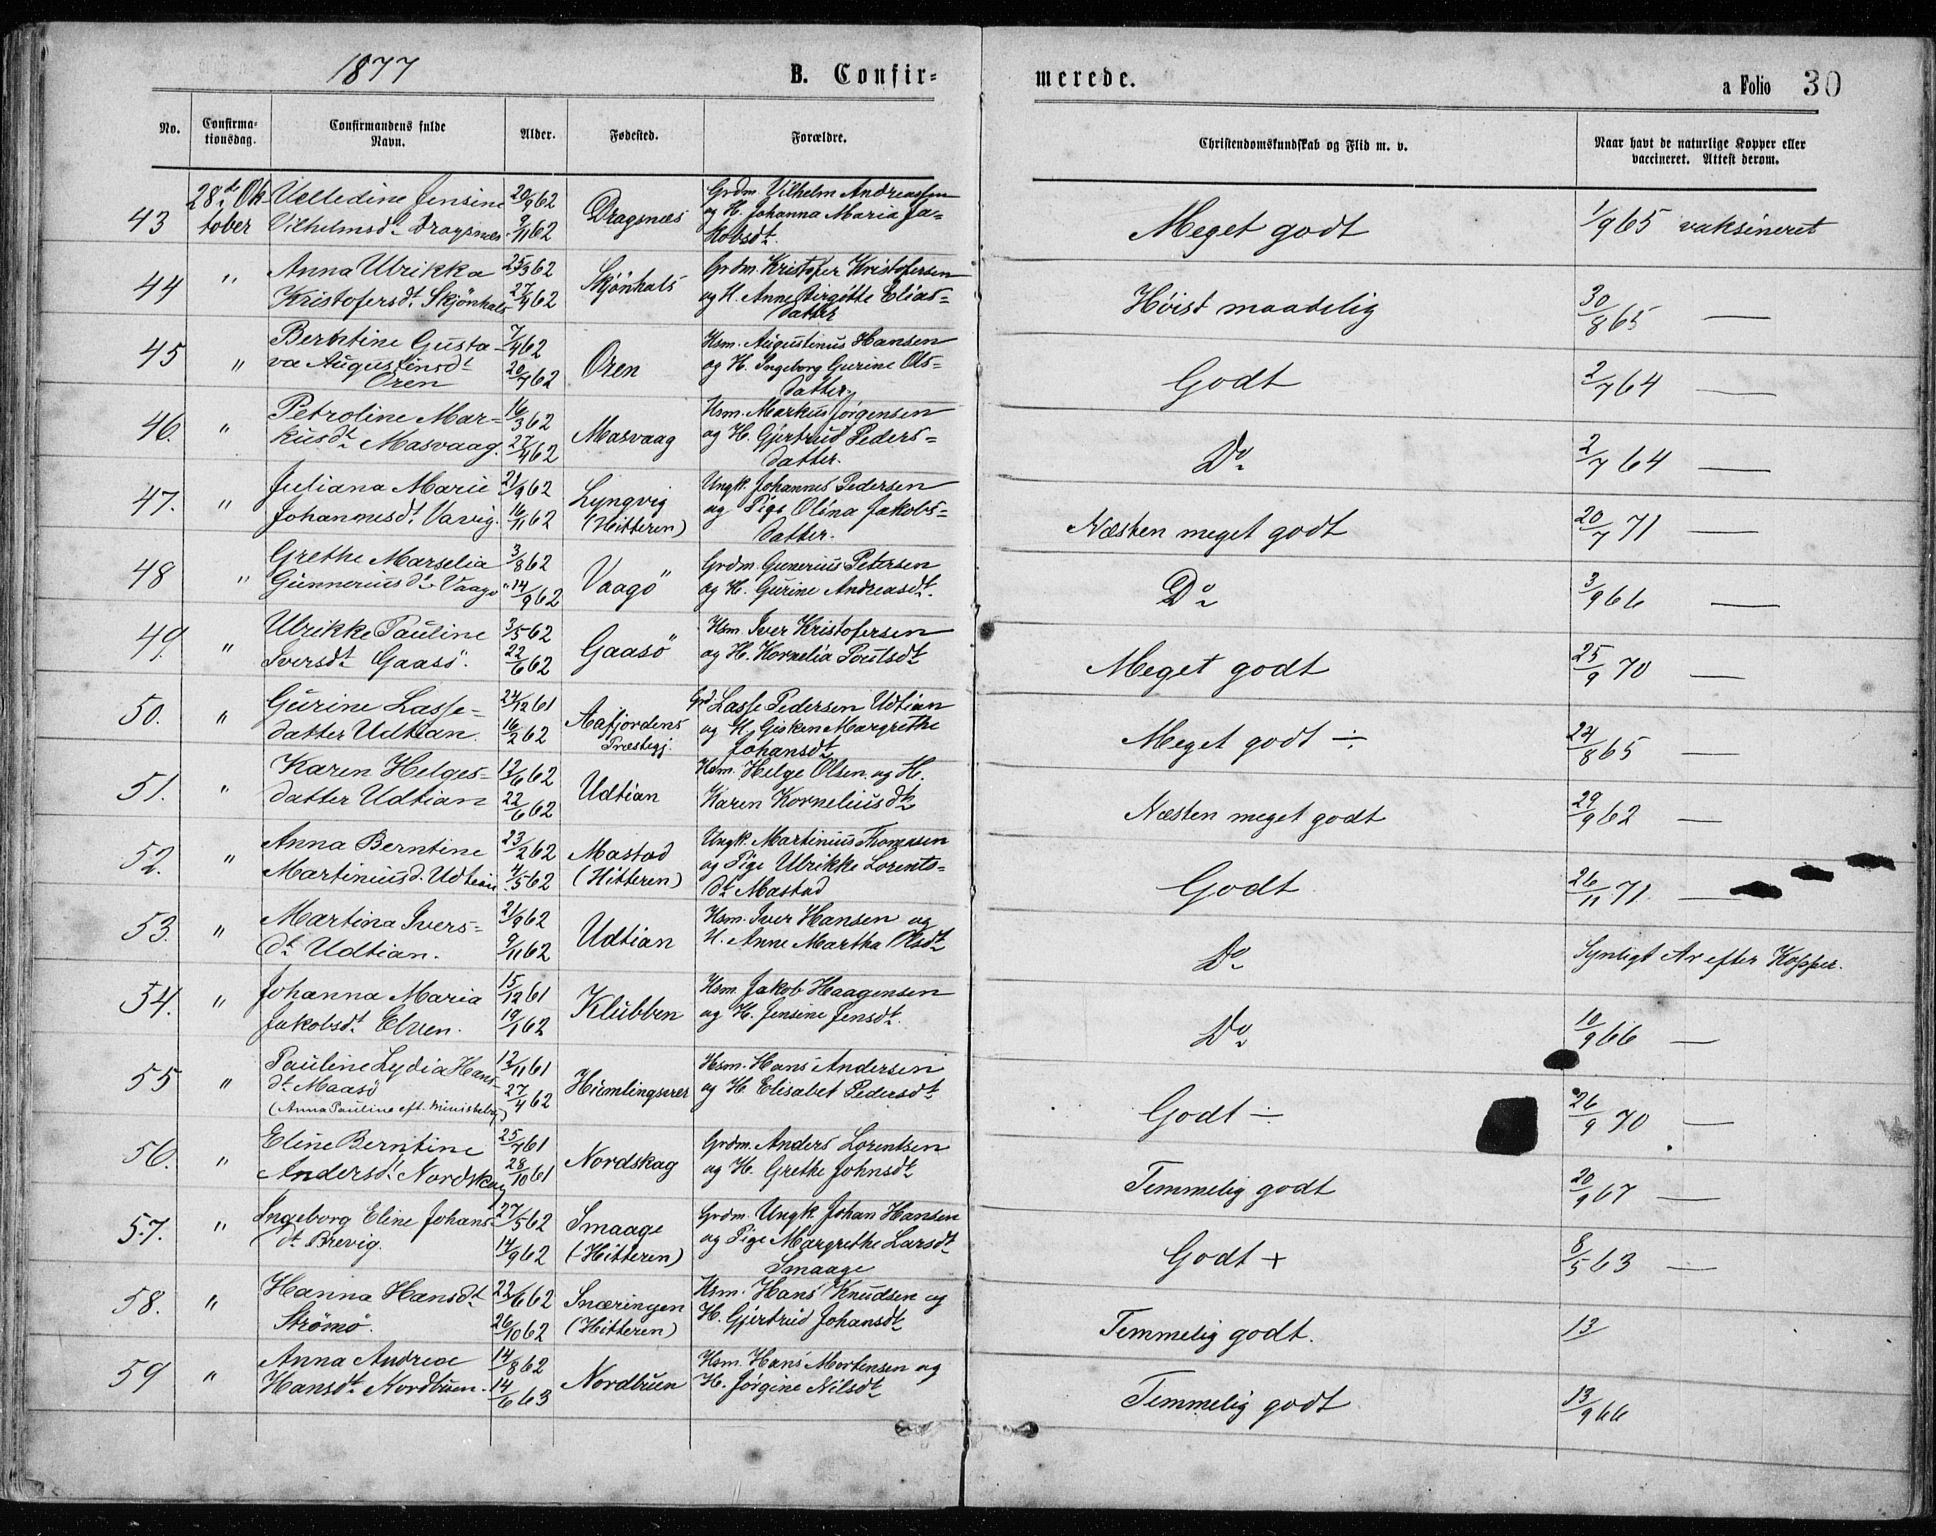 1877
B. Confir=
merede.
a Folio 30
No.
Confirma-
tionsdag.
Confirmandens fulde
Navn.
Alder.
Fødested.
Forældre.
Christendomskundskab og Flid m. v.
Naar havt de naturlige Kopper eller
vaccineret. Attest derom.
43 28de Ok- Velledine Jensine 20/9 62 Dragsnæs Grdm. Vilhelm Andreassen
tober Vilhelmsdt. Dragsnæs. 9/11 62 og H. Johanna Maria Ja-
kobsdt.
Meget godt 1/9 65 vaksineret
44 " Anna Ulrikka 25/3 62 Skjønhals Grdm. Kristofer Kristofersen
Kristofersdt. Skjønhals 27/4 62 og H. Anne Birgitte Elias=
datter
Høist maadelig 30/8 65 —
45 " Berntine Gusta- 7/4 62 Oren Hsm. Augustinus Hansen
va Augustinsdt. 20/7 62 og H. Ingeborg Gurine Ols=
Oren datter
Godt 2/7 64 —
46. " Petroline Mar- 16/3 62 Masvaag Hsm. Markus Jørgensen
kusdt. Masvaag. 27/4 62 og H. Gjertrud Peders=
datter.
Do 2/7 64 —
47. " Juliana Marie 21/9 62 Lyngvig Ungk. Johannes Pedersen
Johannesdt. Vavig. 16/11 62 (Hitteren) og Pige Olina Jakobs=
datter.
Næsten meget godt 20/7 71 —
48 " Grethe Marselia 3/8 62 Vaagö Grdm. Gunerius Petersen
Gunneriusdt. Vaagö 14/9 62 og H. Gurine Andreasdt.
Do 3/9 66 —
49. " Ulrikke Pauline 3/5 62 Gaasö Hsm. Iver Kristofersen
Iversdt. Gaasö. 22/6 62 og H. Kornelia Poulsdt.
Meget godt 25/9 70 —
50. " Gurine Lasse- 24/12 61 Aafjordens Grd. Lasse Pedersen Udtian
datter Udtian. 16/2 62 Præstegj. og H. Gisken Margrethe
Johansdt.
Meget godt ÷ 24/8 65 —
51. " Karen Helges- 12/6 62 Udtian Hsm. Helge Olsen og H.
datter Udtian 22/6 62 Karen Korneliusdt.
Næsten meget godt 29/9 62 —
52. " Anna Berntine 23/2 62 Mastad Ungk. Martinius Thomesen
Martiniusd. Udtian. 4/5 62 (Hitteren) og Pige Ulrikke Lorents=
dt. Mastad
Godt 26/11 71. —
53. " Martina Ivers- 21/9 62 Udtian Hsm. Iver Hansen og
dt. Udtian. 9/11 62 H. Anne Martha Olsdt.
Do Synligt Ar efter Kopper.
54. " Johanna Maria 15/12 61 Klubben Hsm. Jakob Haagensen
Jakobsdt. Elven. 19/1 62 og H. Jensine Jensdt.
Do 10/9 66 —
55 " Pauline Lydia Hans- 12/11 61 Humlingsvær Hsm. Hans Andersen
dt. Maasö 27/4 62 og H. Elisabet Pedersdt.
(Anna Pauline eft. Ministelbog)
Godt ÷ 26/9 70 —
56. " Eline Berntine 25/7 61 Nordskag Grdm. Anders Lorentsen
Andersdt. Nordskag 28/10 61 og H. Grethe Johnsdt.
Temmelig godt 20/9 67 —
57. " Ingeborg Eline Johans- 27/5 62 Smaage Grdm. Ungk. Johan Hansen
dt. Brevig. 14/9 62 (Hitteren) og Pige Margrethe Larsdt.
Smaage
Godt + 8/5 63 —
58. " Hanna Hansdt. 22/6 62 Snæringen Hsm. Hans Knudsen og
Strömö. 26/10 62 (Hitteren) H. Gjertrud Johansdt.
Temmelig godt. 13/
59 " Anna Andrea 14/8 62 Nordbuen Hsm. Hans Mortensen og
Hansdt. Nordbuen. 14/6 63 H. Jørgine Nilsdt.
Temmelig godt 13/9 66